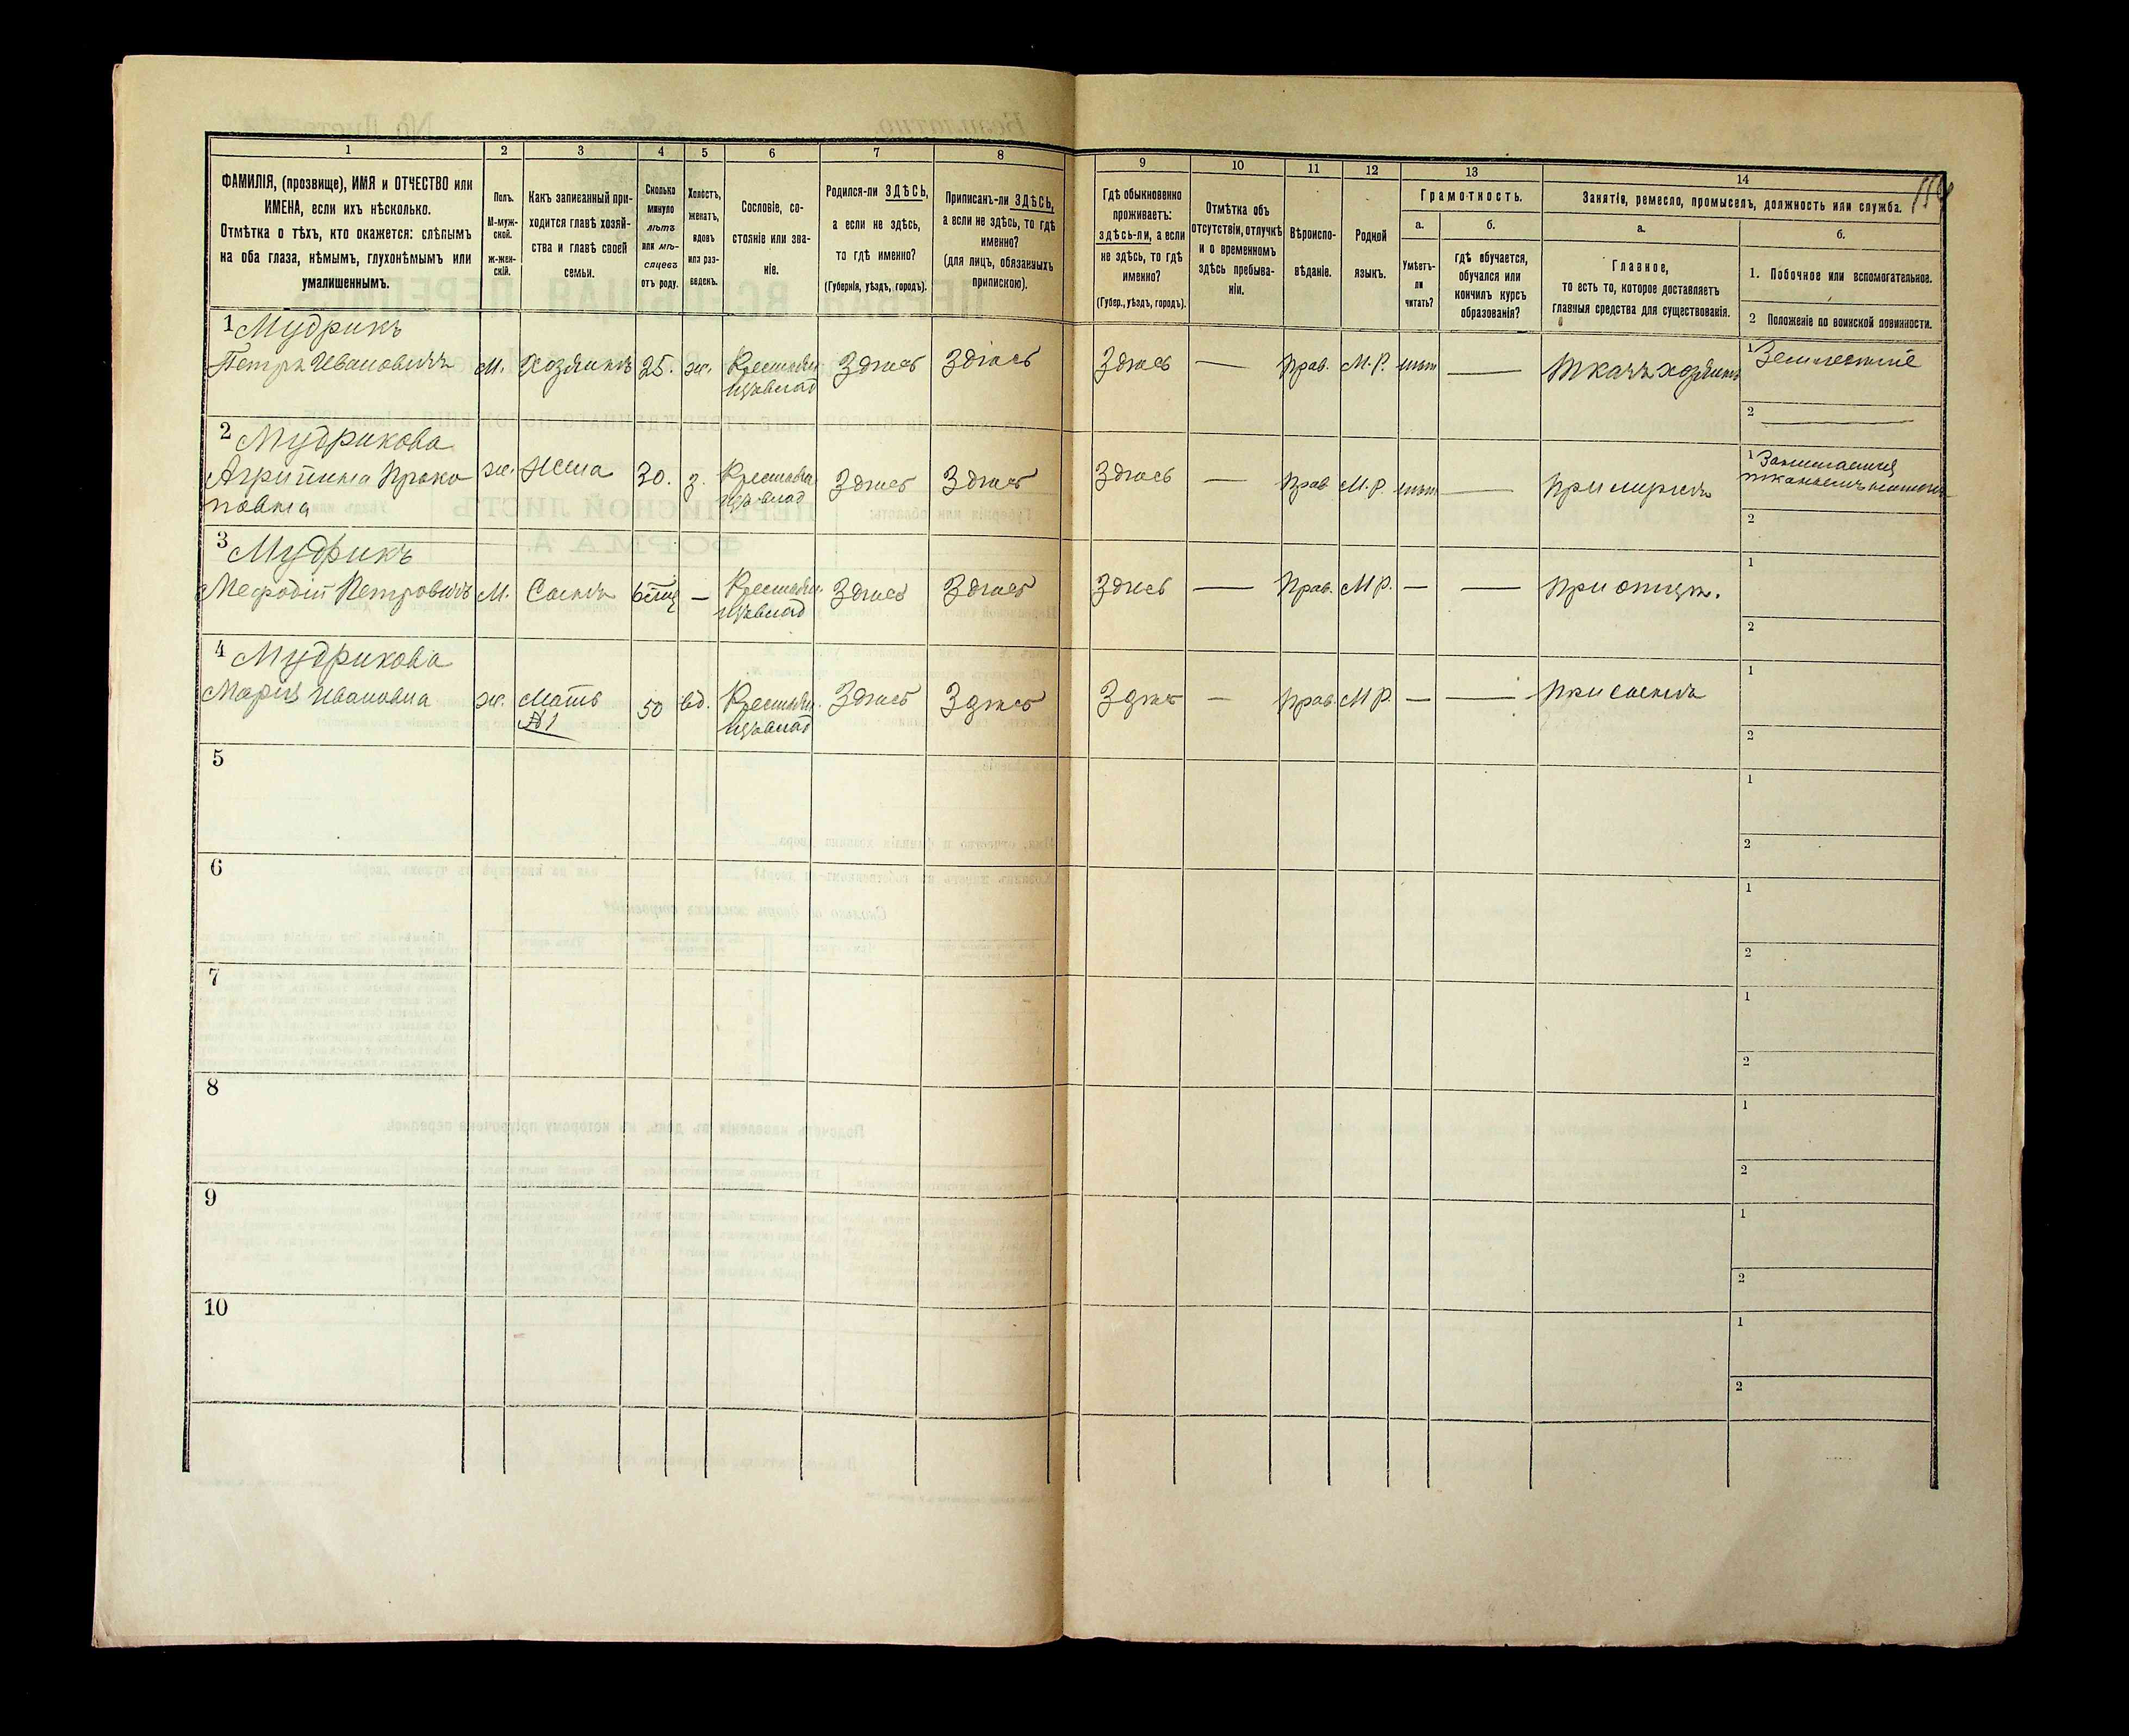 1 2 3 4 5 6 7 8 9 10 11 12 13 14
ФАМИЛІЯ, (прозвище), ИМЯ и ОТЧЕСТВО или
ИМЕНА, если ихъ нѣсколько.
Отмѣтка о тѣхъ, кто окажется: слѣпымъ
на оба глаза, нѣмымъ, глухонѣмымъ или
умалишеннымъ.
Полъ.
М-муж-
ской.
ж-жен-
скій.
Какъ записанный при-
ходится главѣ хозяй-
ства и главѣ своей
семьи.
Сколько
минуло
лѣтъ
или мѣ-
сяцевъ
отъ роду.
Холостъ,
женатъ,
вдовъ
или раз-
веденъ.
Сословіе, со-
стояніе или зва-
ніе.
Родился-ли ЗДѢСЬ,
а если не здѣсь,
то гдѣ именно?
(Губернія, уѣздъ, городъ).
Приписанъ-ли ЗДѢСЬ,
а если не здѣсь, то гдѣ
именно?
(для лицъ, обязанныхъ
припискою).
Гдѣ обыкновенно
проживаетъ:
здѣсь-ли, а если
не здѣсь, то гдѣ
именно?
(Губер., уѣздъ, городъ).
Отмѣтка объ
отсутствіи, отлучкѣ
и о временномъ
здѣсь пребыва-
ніи.
Вѣроиспо-
вѣданіе.
Родной
языкъ.
Грамотность.
а.
Умѣетъ-
ли
читать?
б.
гдѣ обучается,
обучался или
кончилъ курсъ
образованія?
Занятія, ремесло, промыселъ, должность или служба.
а.
Главное,
то есть то, которое доставляетъ
главныя средства для существованія.
б.
1. Побочное или вспомогательное.
2 Положеніе по воинской повинности.
1 Мудрикъ
Петръ Ивановичъ М. Хозяинъ 25. ж. Крестьян Здѣсь Здѣсь Здѣсь — Прав. М.Р. нѣтъ — Ткачъ хозяинъ 1 Земледѣліе
2 —
2 Мудрикова
Агрипина Проко ж. Жена 20. з. Здѣсь Здѣсь Здѣсь — Прав М.Р. нѣтъ — При мужѣ 1 Занимается
повна
2
3 Мудрикъ
Мефодій Петровичъ М. Сынъ — Здѣсь Здѣсь Здѣсь — Прав. М Р. — — При отцѣ.
1
2
4 Мудрикова
Марія Ивановна ж. Мать 50 вд. Здѣсь Здѣсь Здѣсь — Прав. М Р. — — При сынѣ
№ 1
1
2
5
1
2
6
1
2
7
1
2
8
1
2
9
1
2
10
1
2